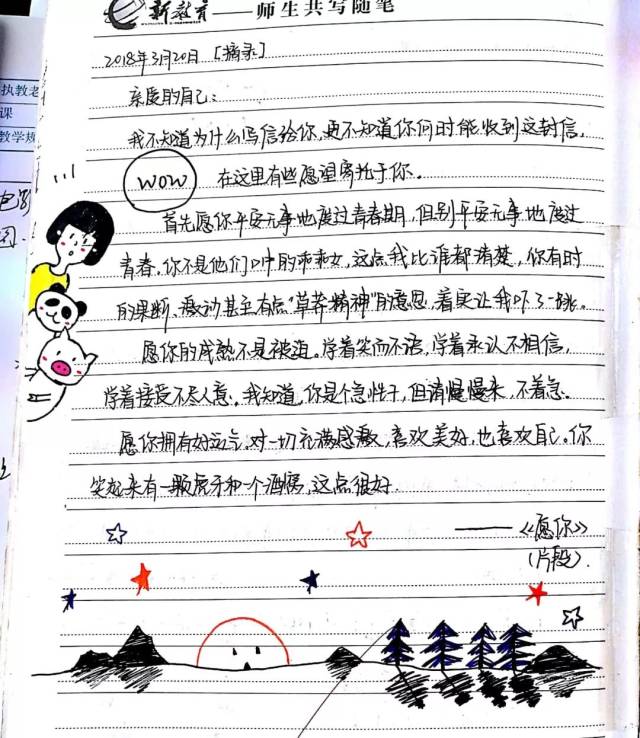 新教育——师生共写随笔
2018年3月20日 [摘录]
亲爱的自己:
我不知道为什么写信给你,更不知道你何时能收到这封信,
WOW 在这里有些愿望寄托于你。
首先愿你平安无事地度过青春期,但别平安无事地度过
青春。你不是他们口中的乖乖女,这点我比谁都清楚,你有时
的果断、激动甚至有点"草莽精神"的意思,着实让我吓了一跳。
愿你的成熟不是被迫。学着笑而不语,学着承认不相信,
学着接受不尽人意。我知道,你是个急性子,但请慢慢来,不着急。
愿你拥有好运气,对一切充满感激,喜欢美好,也喜欢自己。你
笑起来有一颗虎牙和一个酒窝,这点很好.
——《愿你》
(片段).
执教老
课
教学规